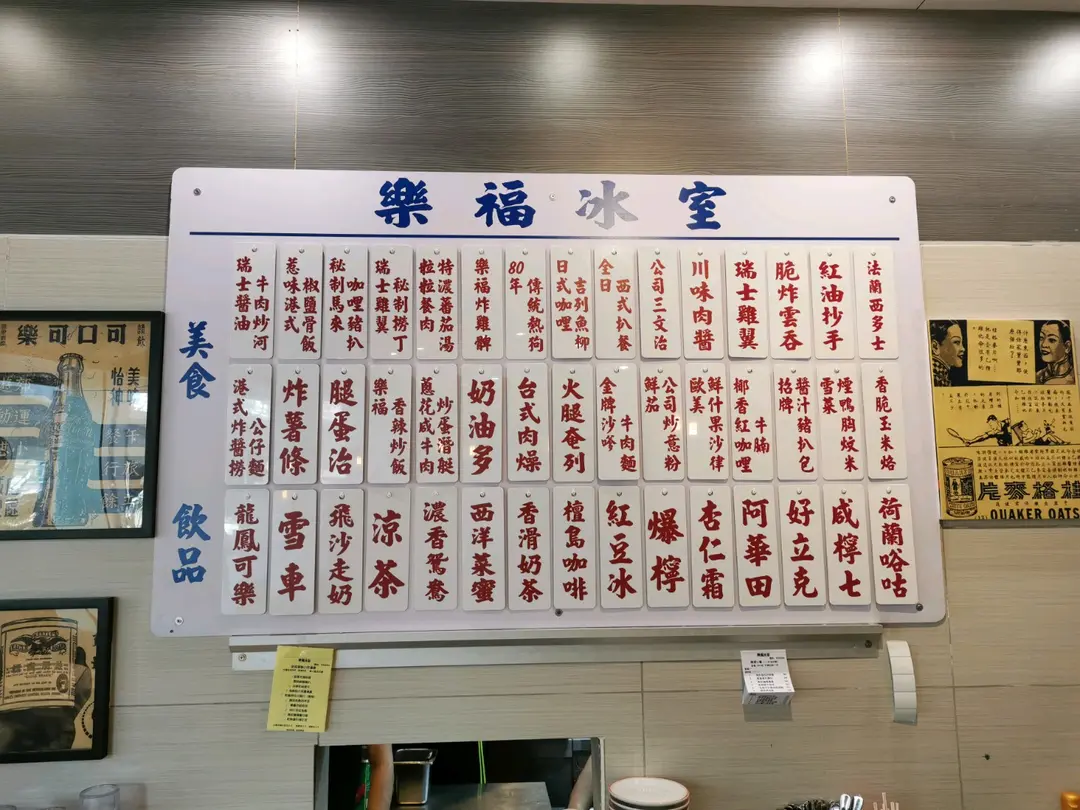 樂福冰室
美食
瑞士醬油
牛肉炒河
惹味港式
椒鹽骨飯
秘制馬來
咖哩豬扒
瑞士雞翼
秘制撈丁
粒粒餐肉
特濃蕃茄湯
樂福炸雞髀
80年
傳統熱狗
日式咖哩
吉列魚柳
全日
西式扒餐
公司三文治
川味肉醬
瑞士雞翼
脆炸雲吞
紅油抄手
法蘭西多士
港式炸醬撈
公仔麵
炸薯條
腿蛋治
樂福
香辣炒飯
蔥花咸牛肉
炒蛋潛艇
奶油多
台式肉燥
火腿奄列
金牌沙嗲
牛肉麵
鮮茄
公司炒意粉
歐美
鮮什果沙律
椰香紅咖哩
牛腩
招牌
醬汁豬扒包
雪菜
煙鴨胸炆米
香脆玉米烙
飲品
龍鳳可樂
雪車
飛沙走奶
涼茶
濃香鴛鴦
西洋菜蜜
香滑奶茶
檀島咖啡
紅豆冰
爆檸
杏仁霜
阿華田
好立克
咸檸七
荷蘭唂咕
請飲
樂可口可
美味
怡神
片麥格桂
QUAKER OATS